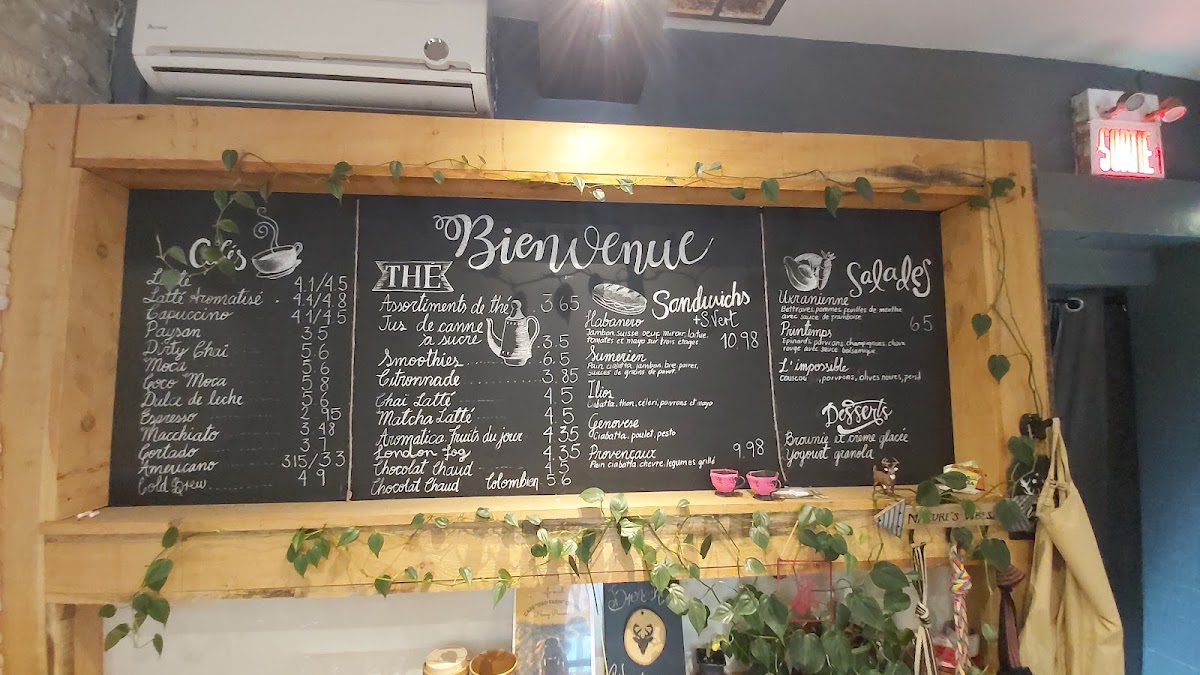 Bienvenue
Cafés
Latté 4.1/4.5
Latté Aromatisé 4.4/4.8
Capuccino 4.1/4.5
Paysan 3.5
Dirty Chaï 5.6
Moca 5.6
Coco Moca 5.8
Dulce de leche 5.6
Espresso 2.95
Macchiato 3.48
Cortado 3.7
Americano 3.15/3.3
Cold Brew 4.9
THÉ
Assortiments de thé 3.65
Jus de canne
à sucre 3.5
Smoothies 6.5
Citronnade 3.85
Chai Latté 4.5
Matcha Latté 4.5
Aromatica fruits du jour 4.35
London Fog 4.35
Chocolat Chaud 4.5
Chocolat Chaud Colombien 5.6
Sandwichs
+S.Vert
Habanero
Jambon suisse, oeuf miroir, laitue,
tomates et mayo sur trois étages 10.98
Sumerien
Pain ciabatta, jambon, brie, poires,
sauces de grains de pavot.
Ilios
Ciabatta, thon, céleri, poivrons et mayo
Genovese
Ciabatta, poulet, pesto
Provençaux 9.98
Pain ciabatta, chevre, legumes grillé
Salades
Ukranienne
Bettraves, pommes, feuilles de menthe
avec sauce de framboise
Printemps 6.5
Epinards, poivrons, champignons, choux
rouge avec sauce balsamique
L'impossible
couscou, poivrons, olives noires, persil
Desserts
Brownie et creme glacée
Yogourt granola
SORTIE
NATURE'S